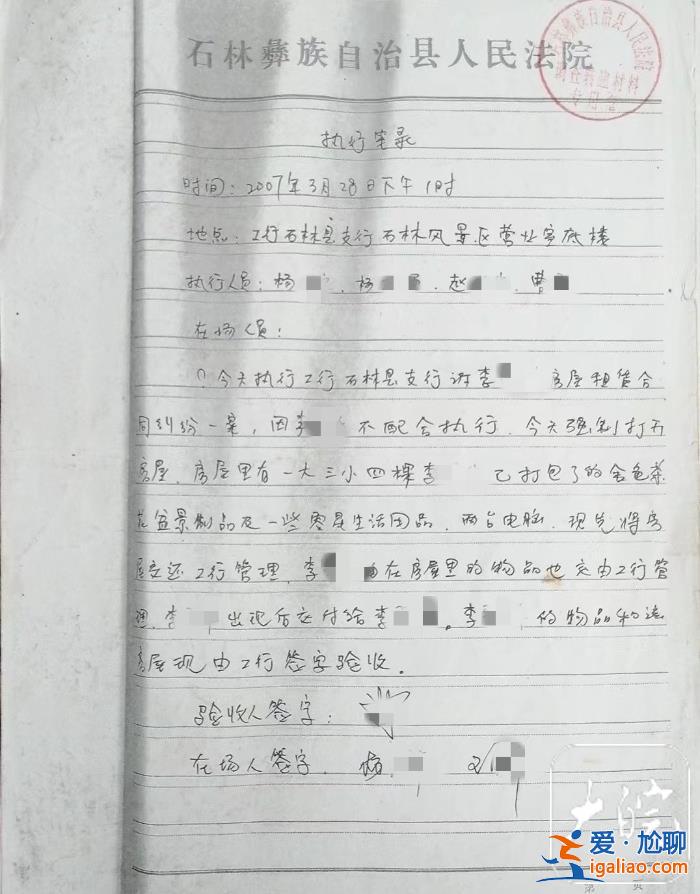 石林彝族自治县人民法院
石林彝族自治县人民法院
专用章
执行笔录
时间:2007年3月28日下午1时
地点:工行石林县支行石林风景区营业室底楼
执行人员:杨 、杨 、赵 、曹
在场人员:
今天执行工行石林县支行诉李 房屋租赁合
同纠纷一案,因李 不配合执行,今天强制打开
房屋,房屋里有一大三小四棵李 已打包了的金色茶
花盆景制品及一些零星生活用品,两台电脑,现先将房
屋交还工行管理,李 在房屋里的物品也交由工行管
理,李 出现后交付给李 。李 的物品和
房屋现由工行签字验收.
验收人签字:
在场人签字. 杨
大皖
爱·尬聊
igaliao.com
第 页